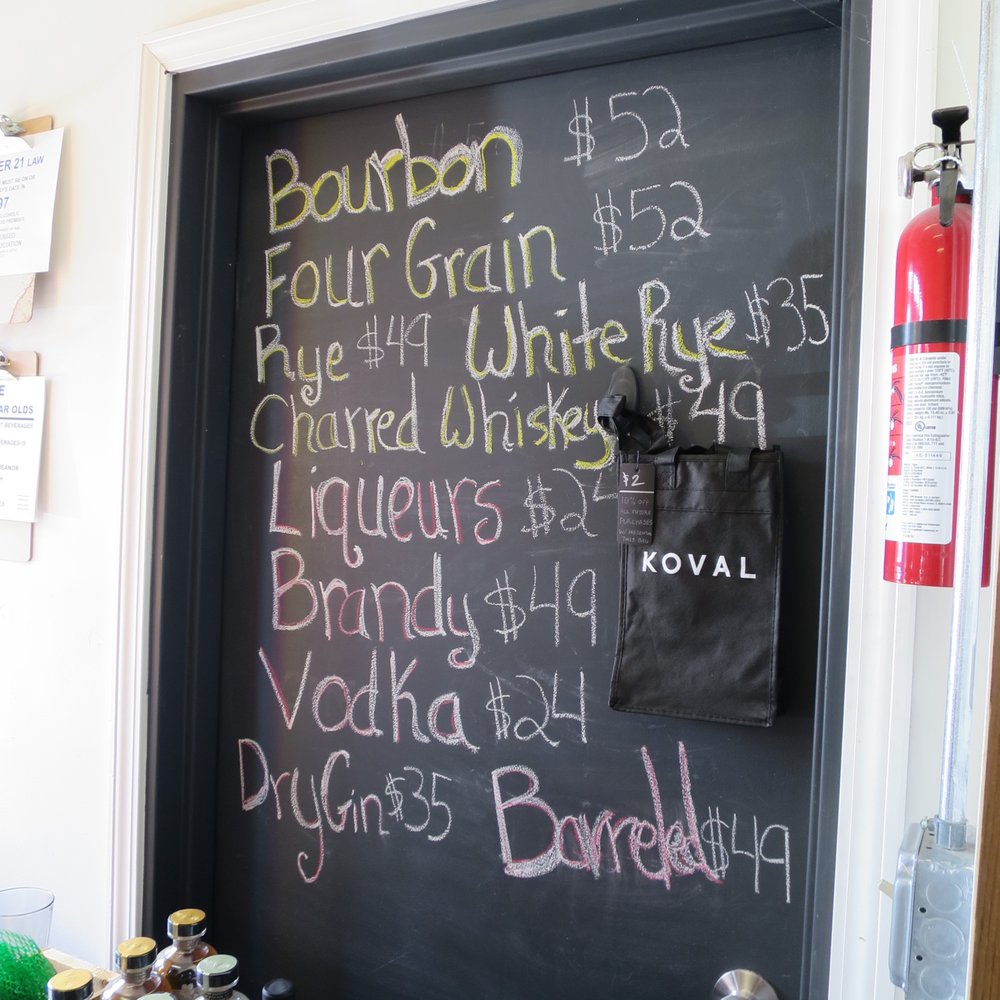 Bourbon $52
Four Grain $52
Rye $49 White Rye $35
Charred Whiskey $49
Liqueurs
Brandy $49
Vodka $24
Dry Gin $35 Barreled $49
$2
10% OFF
ALL FUTURE
PURCHASES
THIS BAG
KOVAL
ER 21 LAW
97
AR OLDS